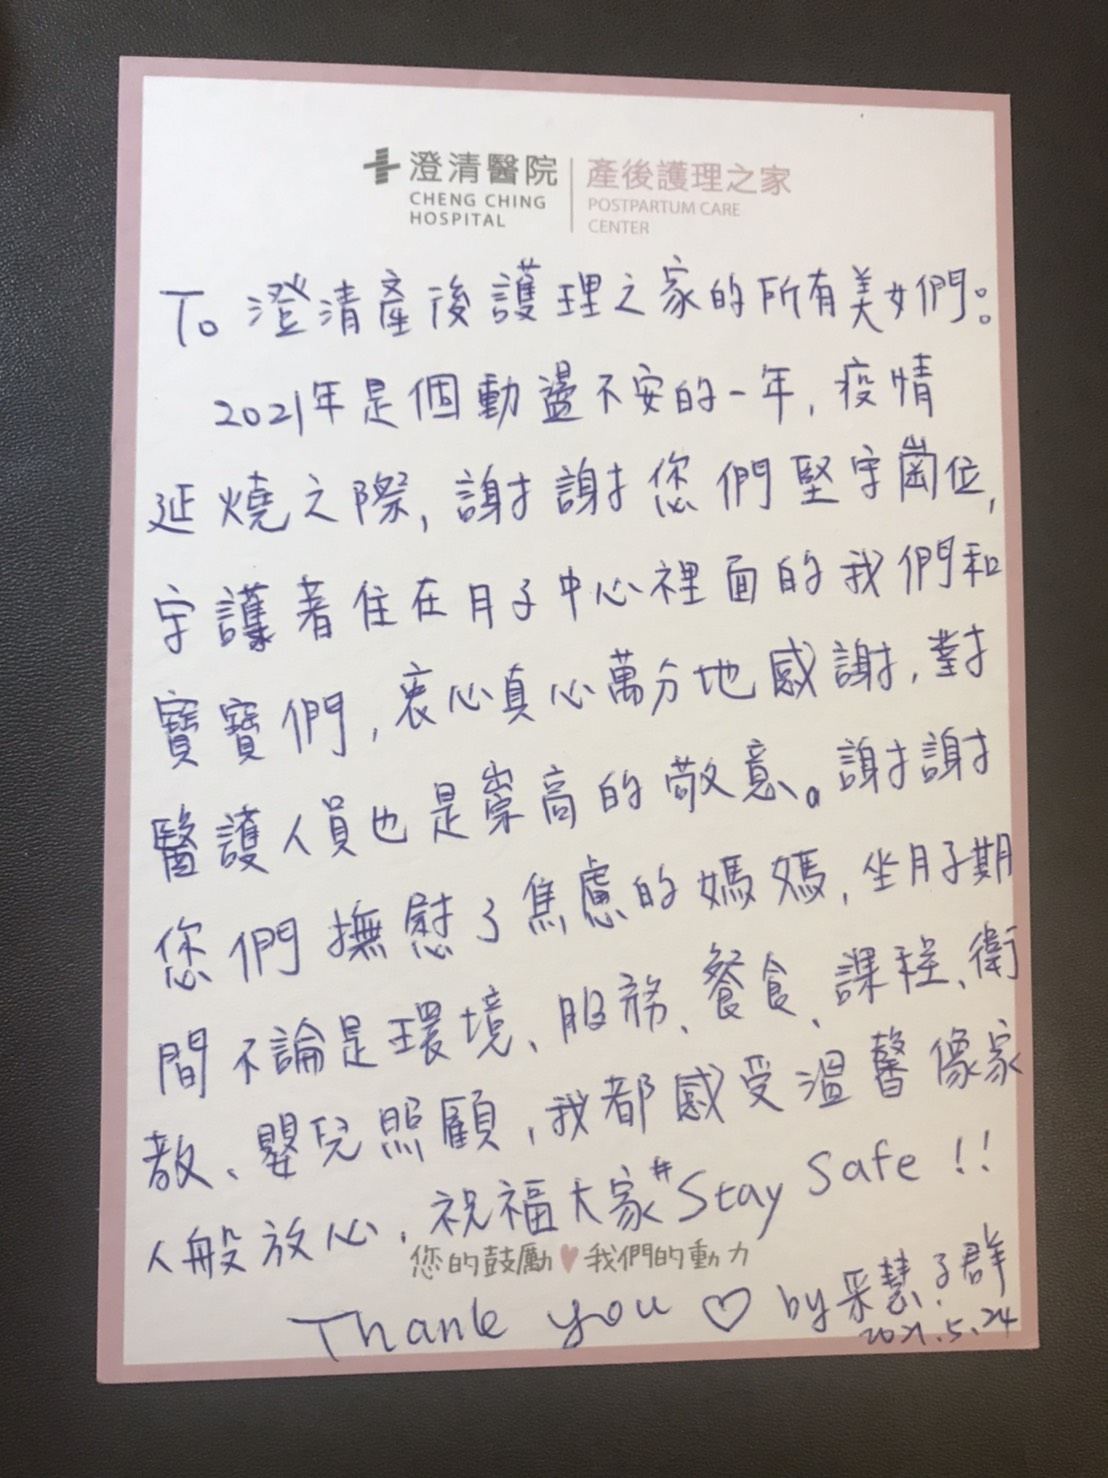 澄清醫院
CHENG CHING
HOSPITAL
產後護理之家
POSTPARTUM CARE
CENTER
To 澄清產後護理之家的所有美女們:
2021年是個動盪不安的一年, 疫情
延燒之際, 謝謝您們堅守崗位,
守護著住在月子中心裡面的我們和
寶寶們, 衷心真心萬分地感謝, 對
醫護人員也是崇高的敬意。謝謝
您們撫慰了焦慮的媽媽, 坐月子期
間不論是環境、服務、餐食、課程、衛
教、嬰兒照顧, 我都感受溫馨像家
人般放心, 祝福大家 #Stay Safe !!
您的鼓勵♥我們的動力
Thank you ♡ by 采慧.子群
2021.5.24